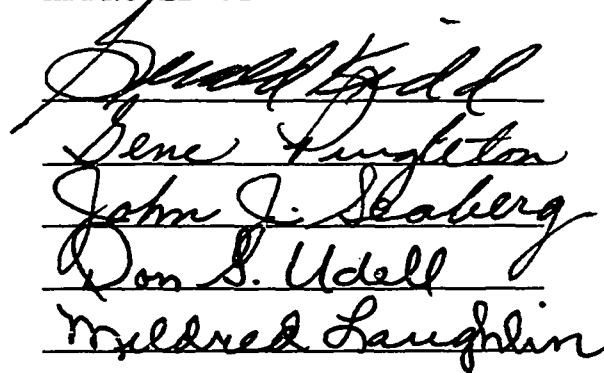 Gerald Kidd
Gene Pingleton
John J. Seaberg
Don S. Udell
Mildred Laughlin